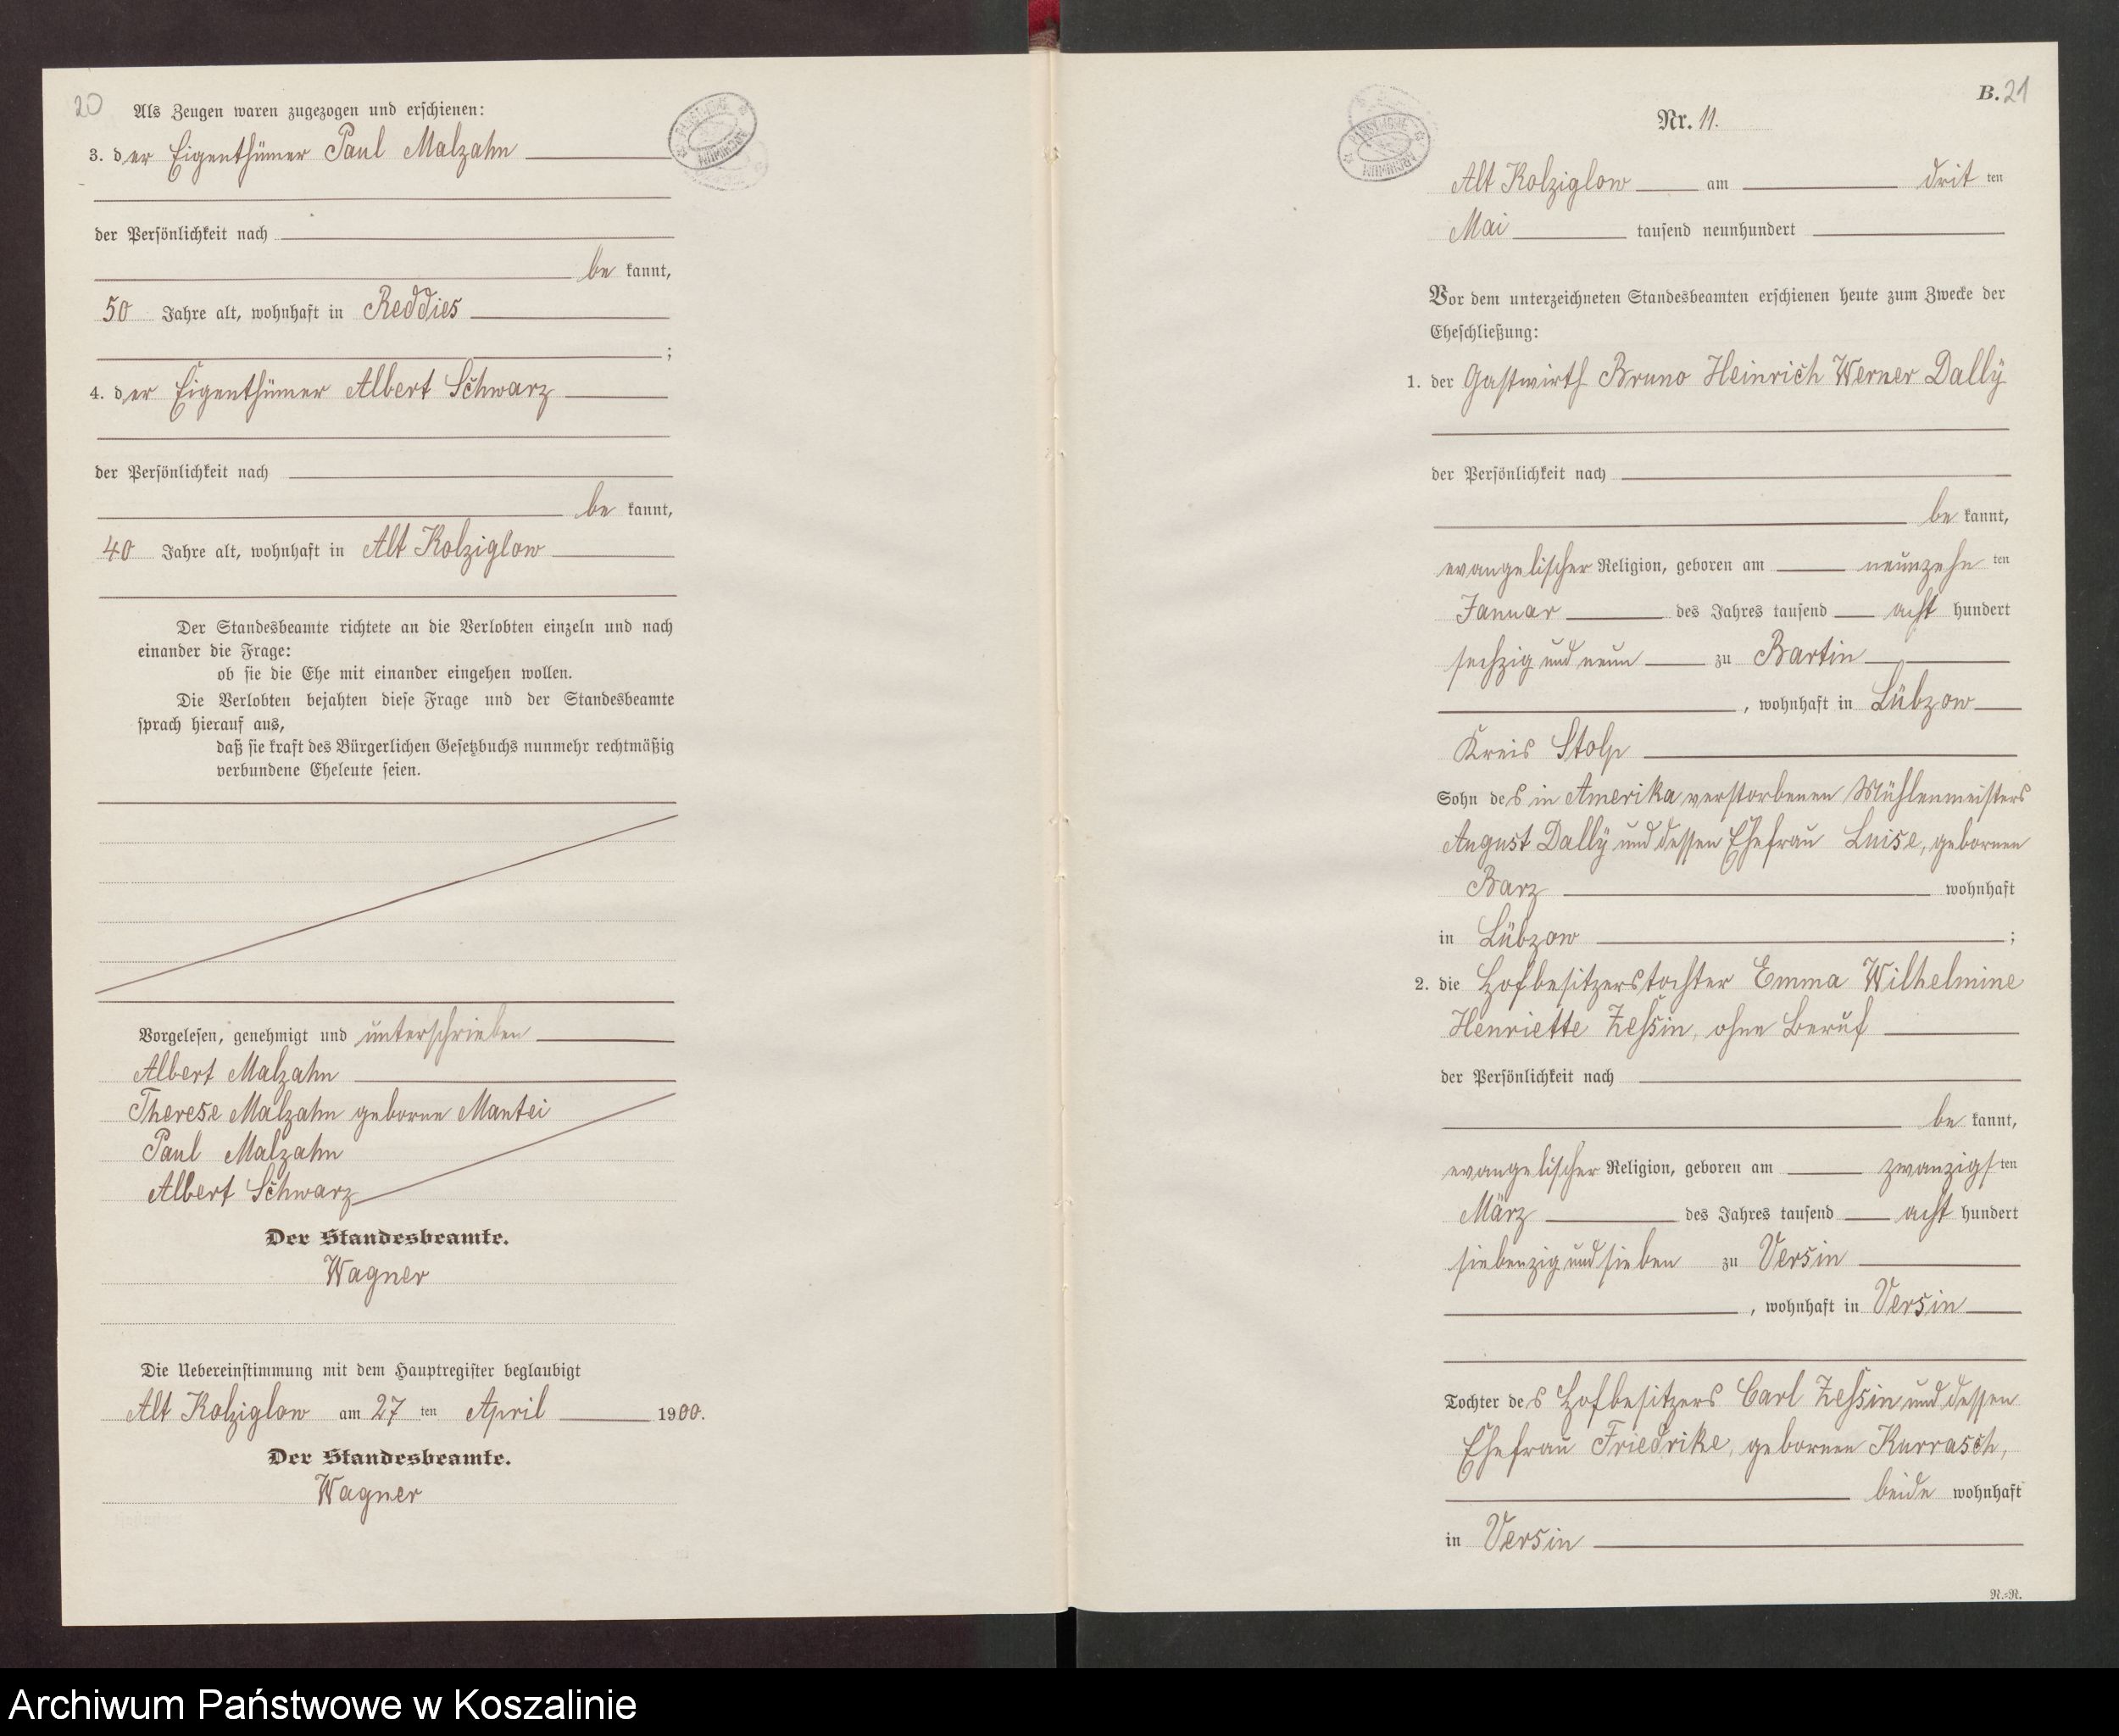 20
Als Zeugen waren zugezogen und erschienen:
3. der Eigenthümer Paul Malzahn
der Persönlichkeit nach
be kannt,
50 Jahre alt, wohnhaft in Reddies
;
4. der Eigenthümer Albert Schwarz
der Persönlichkeit nach
be kannt,
40 Jahre alt, wohnhaft in Alt Kolziglow
Der Standesbeamte richtete an die Verlobten einzeln und nach
einander die Frage:
ob sie die Ehe mit einander eingehen wollen.
Die Verlobten bejahten diese Frage und der Standesbeamte
sprach hierauf aus,
daß sie kraft des Bürgerlichen Gesetzbuchs nunmehr rechtmäßig
verbundene Eheleute seien.
Vorgelesen, genehmigt und unterschrieben
Albert Malzahn
Therese Malzahn geborne Mantei
Paul Malzahn
Albert Schwarz
Der Standesbeamte.
Wagner
Die Uebereinstimmung mit dem Hauptregister beglaubigt
Alt Kolziglow am 27 ten April 1900.
Der Standesbeamte.
Wagner
B. 21
Nr. 11.
Alt Kolziglow am drit ten
Mai tausend neunhundert
Vor dem unterzeichneten Standesbeamten erschienen heute zum Zwecke der
Eheschließung:
1. der Gastwirth Bruno Heinrich Werner Dally
der Persönlichkeit nach
be kannt,
evangelischer Religion, geboren am neunzehn ten
Januar des Jahres tausend acht hundert
sechzig und neun zu Bartin
, wohnhaft in Lübzow
Kreis Stolp
Sohn des in Amerika verstorbenen Mühlenmeisters
August Dally und dessen Ehefrau Luise, gebornen
Barz wohnhaft
in Lübzow ;
2. die Hofbesitzerstochter Emma Wilhelmine
Henriette Zessin, ohne Beruf
der Persönlichkeit nach
be kannt,
evangelischer Religion, geboren am zwanzigsten
März des Jahres tausend acht hundert
siebenzig und sieben zu Versin
, wohnhaft in Versin
Tochter des Hofbesitzers Carl Zessin und dessen
Ehefrau Friedrike, gebornen Kurrasch,
beide wohnhaft
in Versin
N.-N.
Archiwum Państwowe w Koszalinie